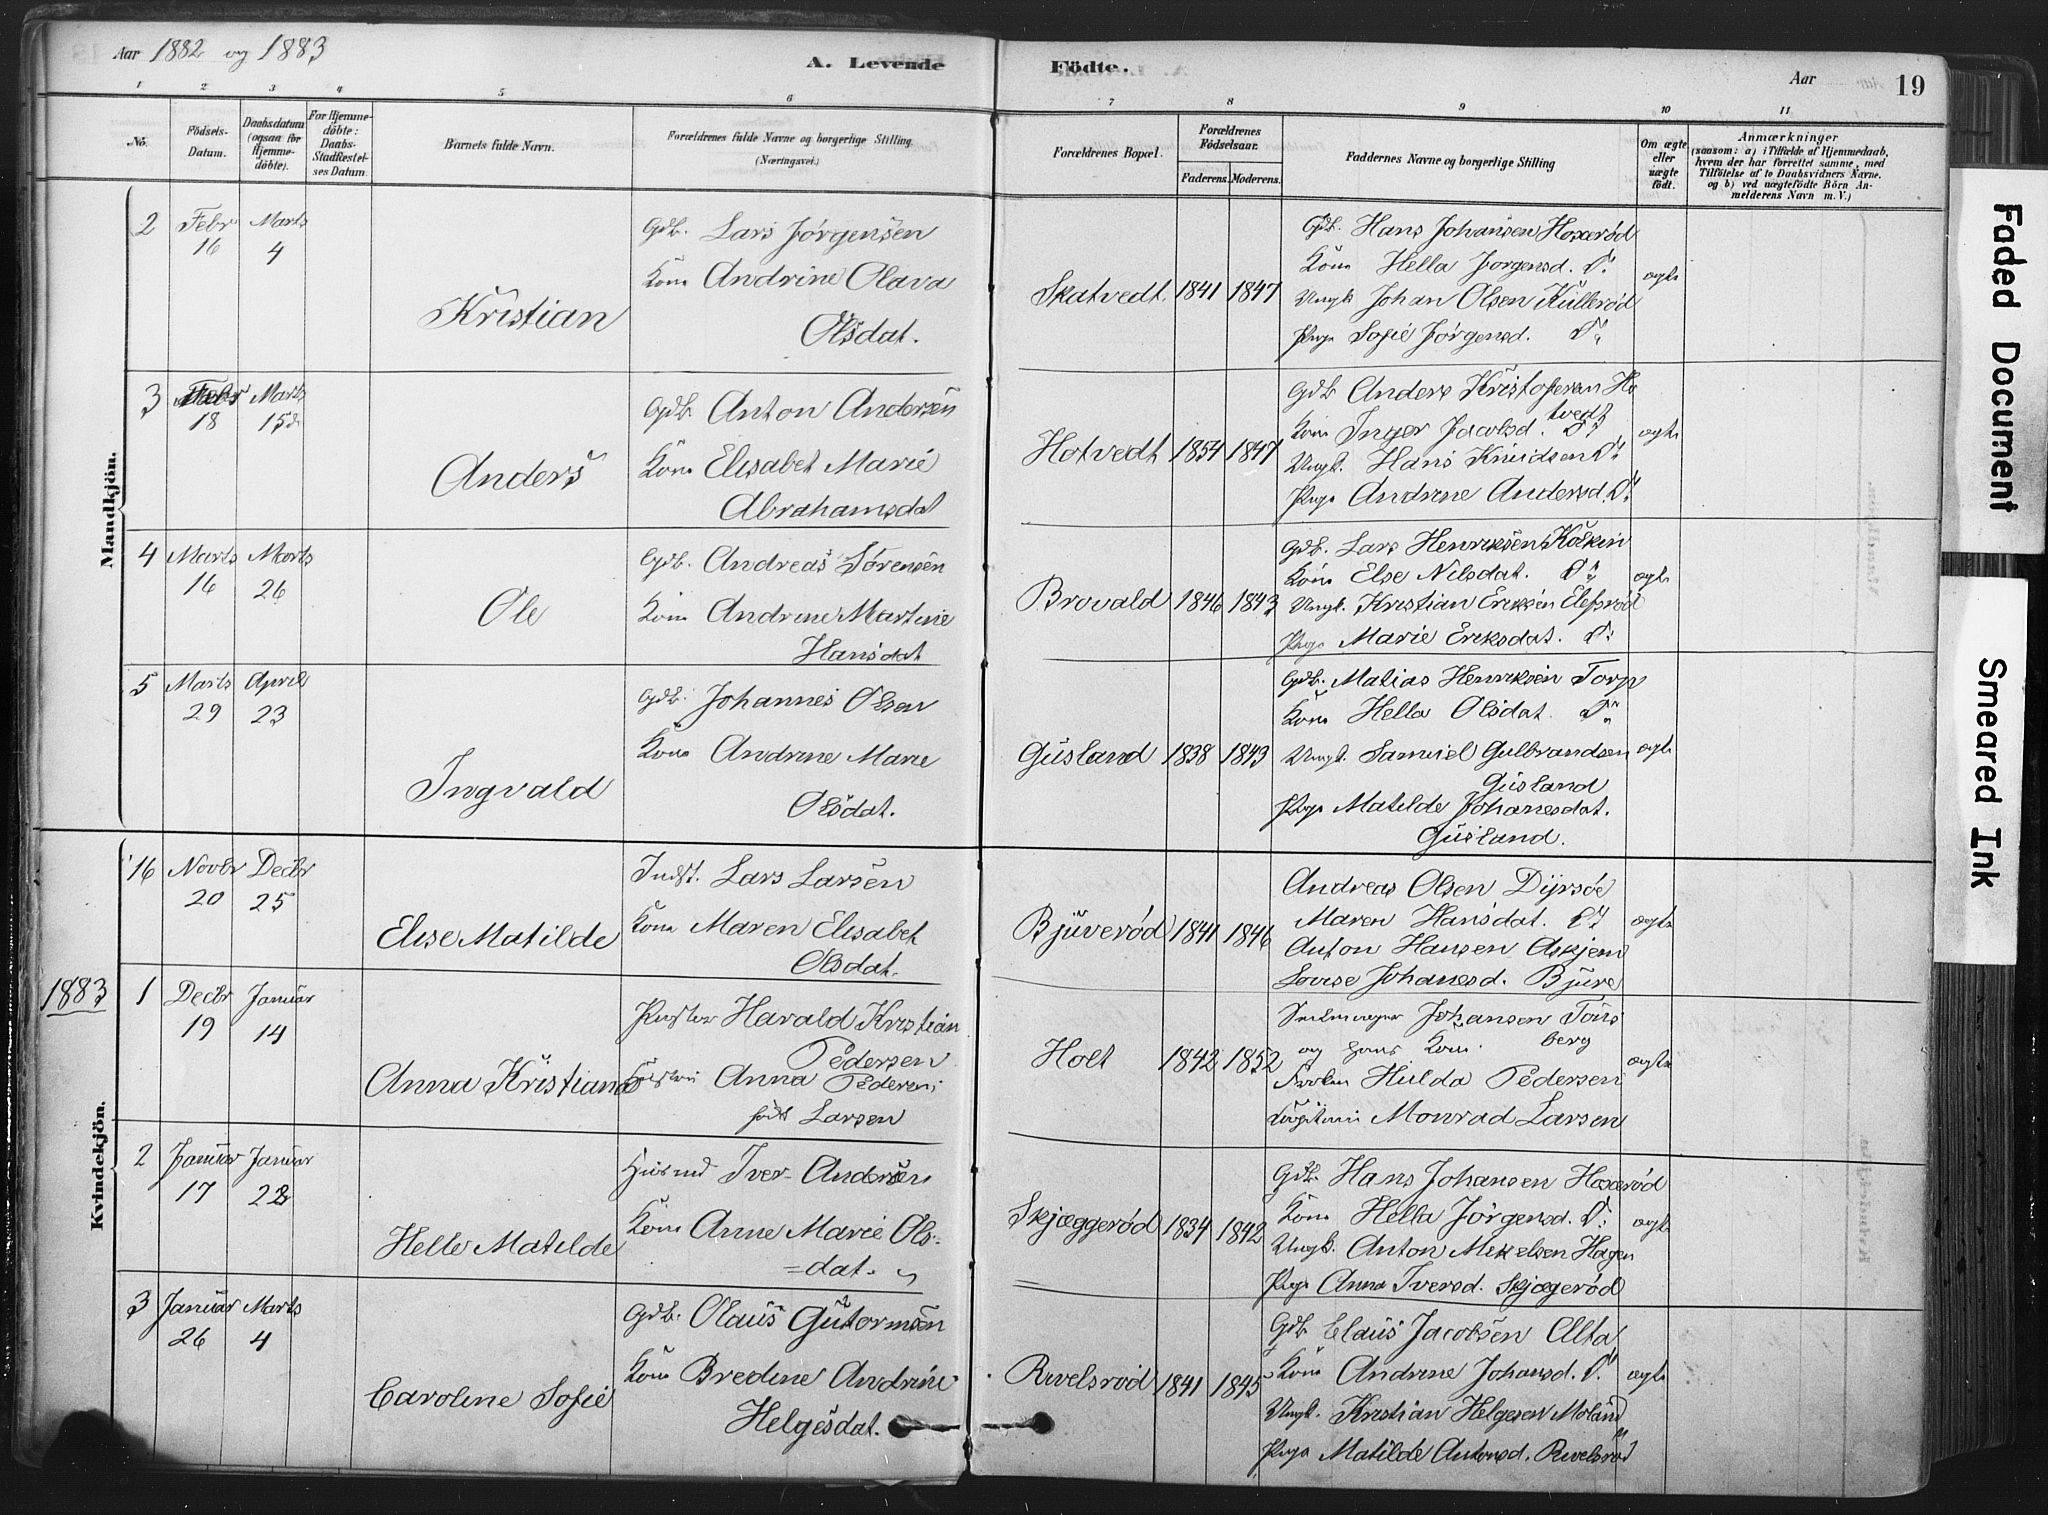 Aar 1882 og 1883
A. Levende Födte.
Aar 19
1 2 3 4 5 6 7 8 9 10 11
No.
Födsels-Datum.
Daabsdatum (ogsaa for Hjemme-döbte).
For Hjemme-döbte: Daabs-Stadfæstel-ses Datum.
Barnets fulde Navn.
Forældrenes fulde Navne og borgerlige Stilling.
(Næringsvei.)
Forældrenes Bopæl.
Forældrenes Födselsaar.
Faderens. Moderens.
Faddernes Navne og borgerlige Stilling
Om ægte eller uægte födt.
Anmærkninger
(saasom: a) i Tilfælde af Hjemmedaab,
hvem der har forrettet samme, med
Tilföielse af to Daabsvidners Navne.
og b) ved uægtefödte Börn An-
melderens Navn m. V.)
Mandkjön.
2 Febr 16 Marts 4
Kristian
Gdb. Lars Jørgensen
Kone Andrine Olava
Olsdat.
Skatvedt 1841 1847
Gdb. Hans Johansen Hoxerød
Kone Hella Jørgensd. Do
Ungk. Johan Olsen Kullerød
Pige Sofie Jørgensd. Do
ægte
3 Febr 18 Marts 15
Anders
Gdb. Anton Andersen
Kone Elisabet Marie
Abrahamsdat
Hotvedt 1854 1847
Gdb Anders Kristofersen Ho
tvedt
Kone Inger Jacobsd. Do
Ungk. Hans Knudsen Do
Pige Andrine Andersd. Do
ægte
4 Marts 16 Marts 26
Ole
Gdb. Andreas Sørensen
Kone Andrine Martine
Hansdat
Brovald 1846 1843
Gdb. Lars Henriksen
Kone Else Nilsdat. Do
Ungk. Kristian Eriksen
Pige Marie Eriksdat. Do
ægte
5 Marts 29 April 23
Ingvald
Gdb. Johannes Olsen
Kone Andrine Marie
Olsdat.
Gusland 1838 1843
Gdb. Matias Henriksen Torp
Kone Hella Olsdat. Do
Ungk. Samuel Gulbrandsen
Gusland
Pige Matilde Johanesdat.
Gusland.
ægte
Kvindekjön.
16 Novbr 20 Decbr 25
Elise Matilde
Indst. Lars Larsen
Kone Maren Elisabet
Olsdat.
Bjuverød 1841 1846
Andreas Olsen Dyrsøe
Maren Hansdat. Do
Anton Hansen Askjem
Lovise Johanesd. Bjure
ægte
1883
1 Decbr 19 Januar 14
Anna Kristiane
Harald Kristian
Pedersen
Anna Pedersen
født Larsen
Holt 1842 1852
Johansen Tøns
berg
og hans Kone
Frøken Hulda Pedersen
Monrad Larsen
ægte
2 Januar 17 Januar 22
Helle Matilde
Husmd Iver Andersen
Kone Anne Marie Ols-
=dat.
Skjæggerød 1834 1842
Gdb. Hans Johansen Hoxerød
Kone Hella Jørgensd. Do
Ungk. Anton Mikelsen Hagen
Pige Anna Iversd. Skjægerød
ægte
3 Januar 26 Marts 4
Caroline Sofie
Gdb. Olaus Gutormsen
Kone Bredine Andrine
Helgesdat.
Rivelsrød 1841 1845
Gdb Claus Jacobsen Alta
Kone Andrine Johansd. Do
Ungk. Kristian Helgesen Moland
Pige Matilde Antonsd. Rivelsrød
ægte
Faded Document
Smeared Ink